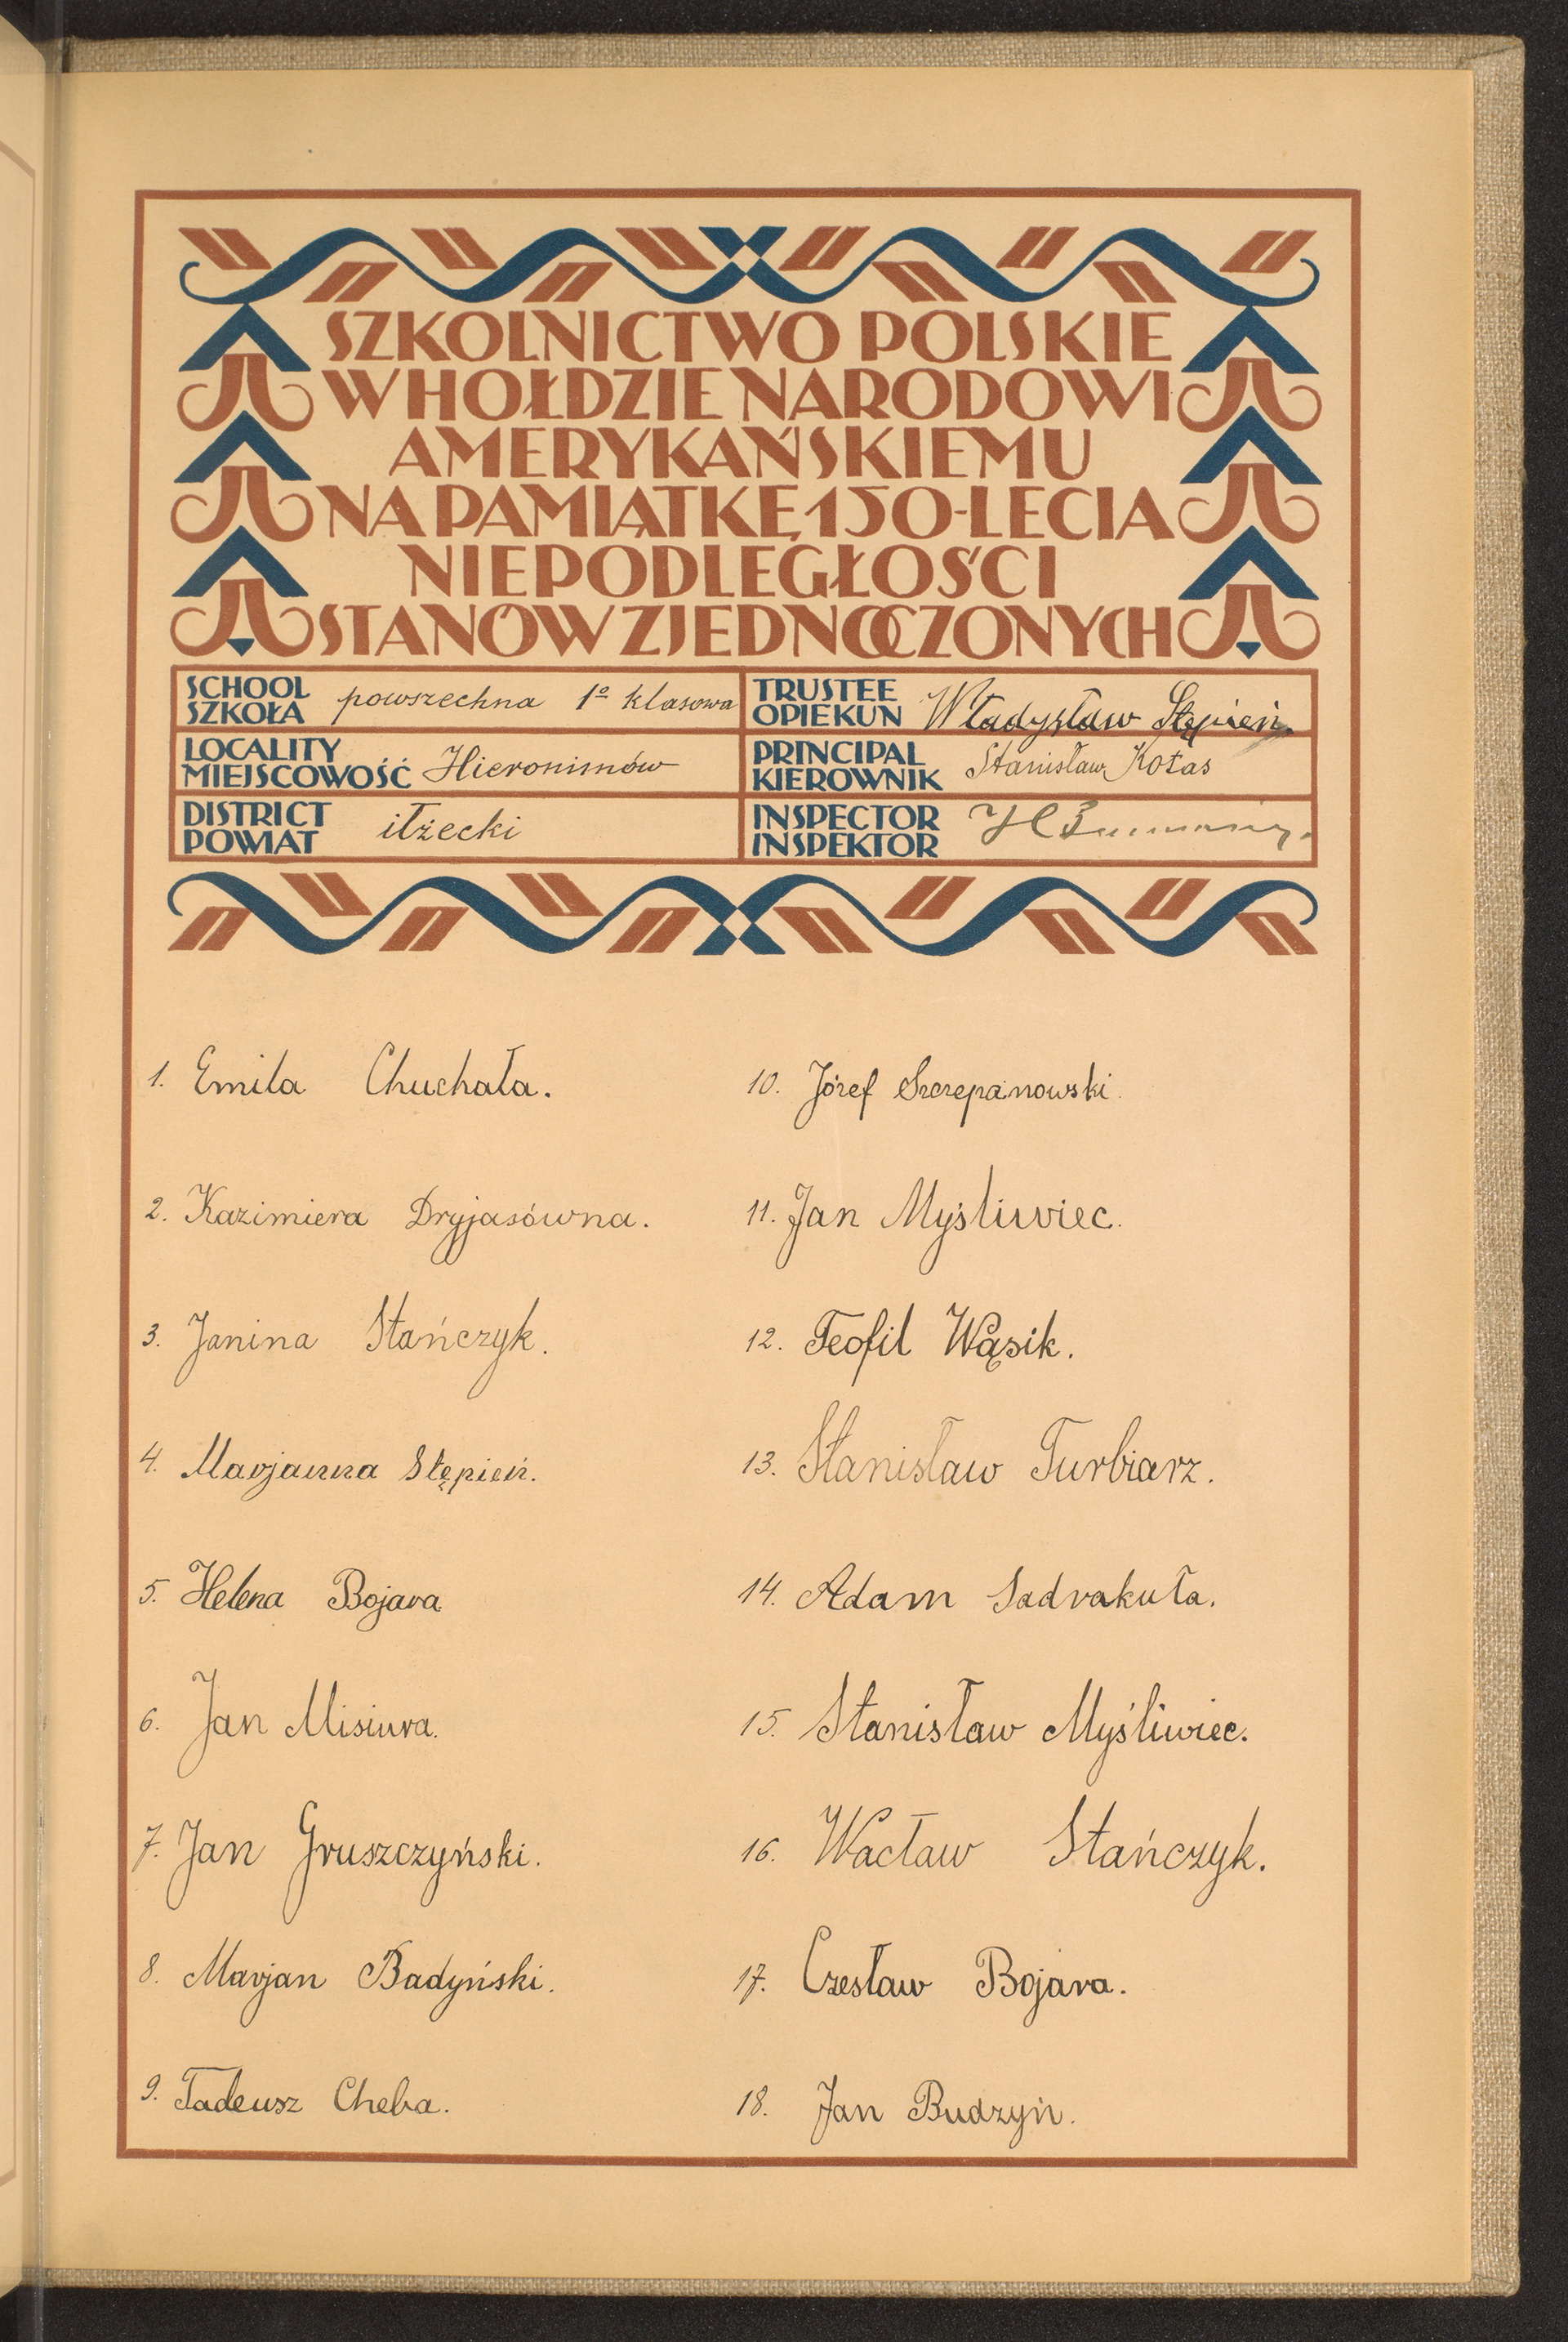 SZKOLNICTWO POLSKIE
W HOŁDZIE NARODOWI
AMERYKAŃSKIEMU
NA PAMIĄTKĘ 150-LECIA
NIEPODLEGŁOŚCI
STANÓW ZJEDNOCZONYCH
SCHOOL
SZKOŁA powszechna 1º klasowa
TRUSTEE
OPIEKUN Władysław Stępień.
LOCALITY
MIEJSCOWOŚĆ Hieronimów
PRINCIPAL
KIEROWNIK Stanisław Kołas
DISTRICT
POWIAT iłżecki
INSPECTOR
INSPEKTOR
1. Emila Chuchała.
2. Kazimiera Dryjasówna.
3. Janina Stańczyk.
4. Marjanna Stępień.
5. Helena Bojara
6. Jan Misiura.
7. Jan Gruszczyński.
8. Marjan Badyński.
9. Tadeusz Cheba.
10. Józef Szczepanowski.
11. Jan Myśliwiec.
12. Teofil Wąsik.
13. Stanisław Turbiarz.
14. Adam Sadrakuła.
15. Stanisław Myśliwiec.
16. Wacław Stańczyk.
17. Czesław Bojara.
18. Jan Budzyń.